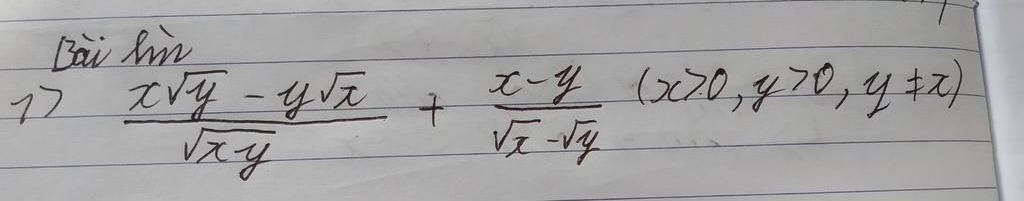 Bài làm
1) \frac{x\sqrt{y} - y\sqrt{x}}{\sqrt{x-y}} + \frac{x-y}{\sqrt{x}-\sqrt{y}} (x>0, y>0, y ≠ x)